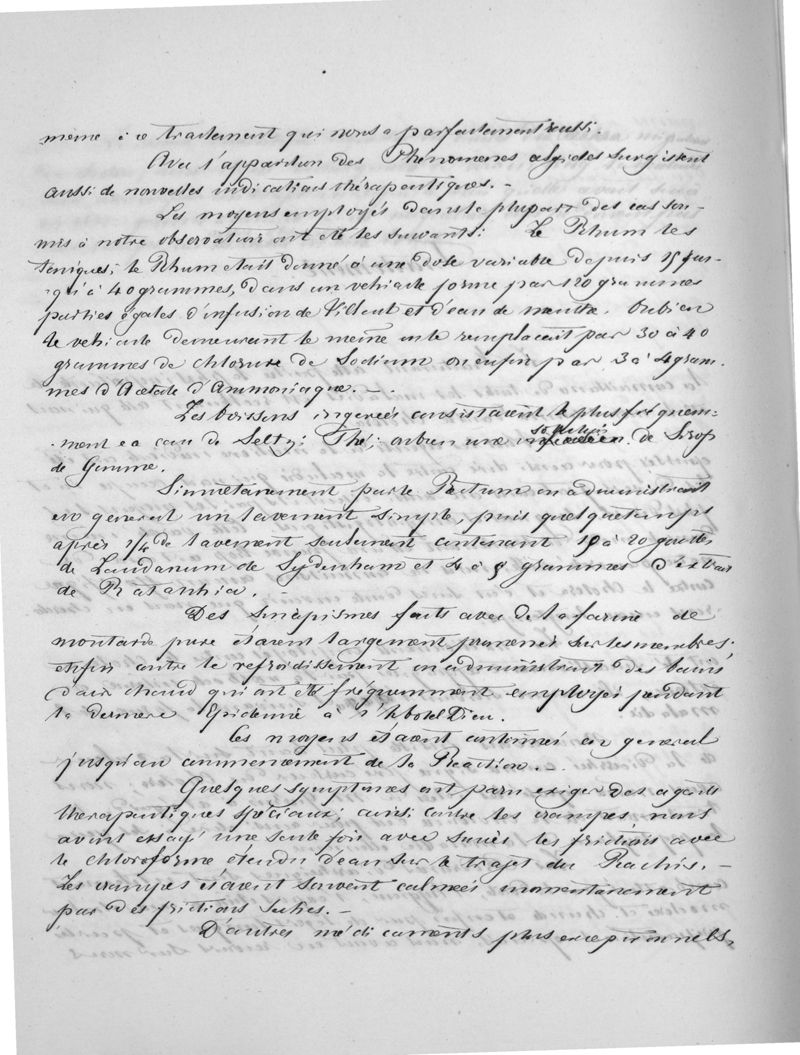 même à ce traitement qui nous a parfaitement réussi.
Avec l'apparition des Phénomènes algides surgissent
aussi de nouvelles indications thérapeutiques. -
Les moyens employés dans le plupart des cas sou-
mis à notre observation ont été les suivants: Le Rhum les
toniques; le Rhum était donné à une dose variable depuis 15 jus-
qu'à 40 grammes, dans un véhicule formé par 120 grammes
parties égales d'infusion de Tilleul et d'eau de menthe. Ou bien
le véhicule demeurant le même on le remplaçait par 30 à 40
grammes de chlorure de Sodium ou enfin par 3 à 4 gram-
mes d'Acétate d'Ammoniaque. -
Les boissons ingérées consistaient le plus fréquem-
ment en eau de Seltz; Thé; ou bien une solution de Sirop
de Gomme.
Simultanément par le Rectum on administrait
en général un lavement simple, puis quelque temps
après 1/4 de lavement seulement contenant 15 à 20 gouttes
de Laudanum de Sydenham et 4 à 5 grammes d'extrait
de Ratanhia. -
Des sinapismes faits avec de la farine de
moutarde pure étaient largement promenés sur les membres;
enfin contre le refroidissement on administrait des bains
d'air chaud qui ont été fréquemment employés pendant
la dernière Epidémie à l'hôtel Dieu.
Ces moyens étaient continués en général
jusqu'au commencement de la Réaction. -
Quelques symptômes ont paru exiger des agents
thérapeutiques spéciaux; ainsi contre les crampes, nous
avons essayé une seule fois avec succès les frictions avec
le chloroforme étendu d'eau sur le trajet du Rachis. -
Les crampes étaient souvent calmées momentanément
par des frictions sèches. -
D'autres médicaments plus exceptionnels,